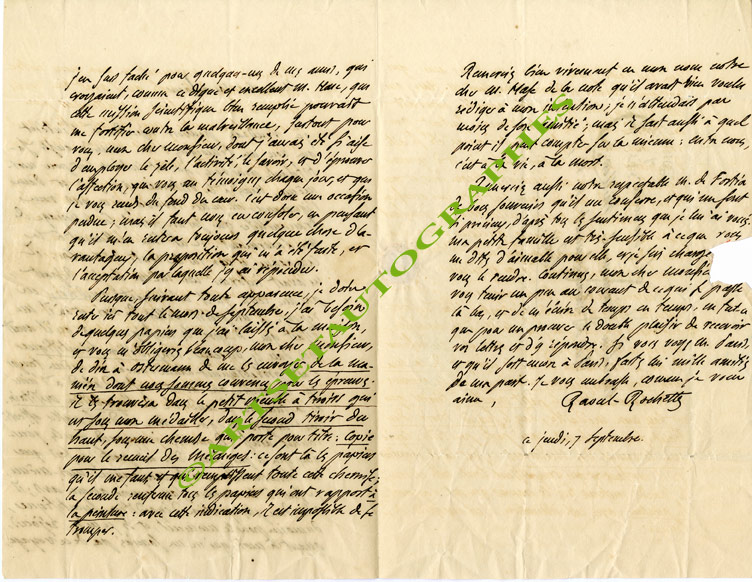 j'en suis faché pour quelques-uns de mes amis, qui
croyaient, comme ce digne et excellent M. Hase, que
cette mission scientifique bien remplie pourrait
me fortifier contre la malveillance, surtout pour
vous, mon cher monsieur, dont j'aurais été si aise
d'employer le zèle, l'activité, le savoir, et d'éprouver
l'affection, que vous me témoignez chaque jour, et que
je vous rends du fond du cœur. c'est donc une occasion
perdue; mais il faut nous en consoler, en pensant
qu'il m'en restera toujours quelque chose d'a-
vantageux, la proposition qui m'a été faite, et
l'acceptation par laquelle j'y ai répondu.
Puisque, suivant toute apparence, je dois
ici tout le mois de septembre, j'ai besoin
de quelques papiers que j'ai laissés à la maison,
et vous m'obligerez beaucoup, mon cher monsieur,
de dire à de me les envoyer de la ma-
nière dont nous sommes convenus pour les épreuves.
il les trouvera dans le petit meuble à tiroirs qui
est sous mon médailler, dans le second tiroir du
haut, sous une chemise qui porte pour titre: copie
pour le recueil des mélanges: ce sont là les papiers
qu'il me faut et qui remplissent toute cette chemise;
la seconde renferme tous les papiers qui ont rapport à
la peinture: avec cette indication, il est impossible de se
tromper.
Remerciez bien vivement en mon nom notre
cher M. Hase de la note qu'il avait bien voulu
rédiger à mon intention; je n'attendais pas
moins de son amitié; mais il sait aussi à quel
point il peut compter sur la mienne: entre nous,
c'est à la vie, à la mort.
Remerciez aussi notre respectable M. de Fortia
du bon souvenir qu'il me conserve, et qui me sont
si précieux, d'après tous les sentimens que je lui ai voués.
ma petite famille est très sensible à ce que vous
m. dites d'aimable pour elle, et je suis chargé
vous le rendre. Continuez, mon cher monsieur
vous tenir un peu au courant de ce qui se passe
là bas, et de m'écrire de temps en temps,
que pour me procurer le double plaisir de recevoir
vos lettres et d'y répondre. Si vous voyez M.
et qu'il soit encore à Paris, faites lui mille amitiés
de ma part. Je vous embrasse, comme je vous
aime,
Raoul-Rochette
ce jeudi, 7 septembre.
©ARTSETAUTOGRAPHES